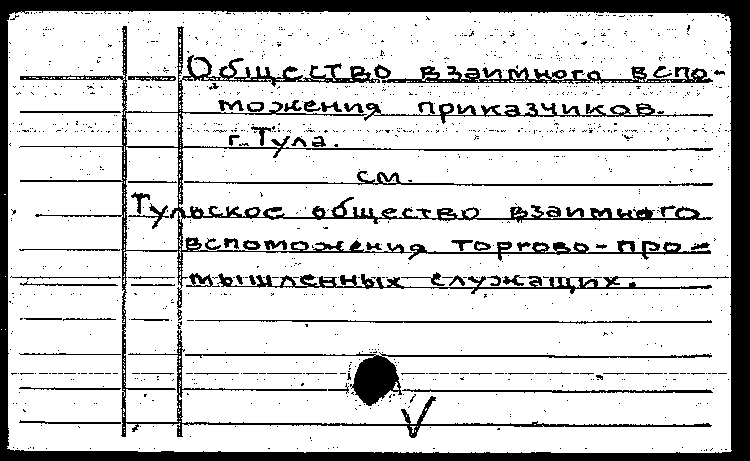 Общество взаимного вспо-
можения приказчиков.
г. Тула.
см.
Тульское общество взаимного
вспоможения торгово-про-
мышленных служащих.